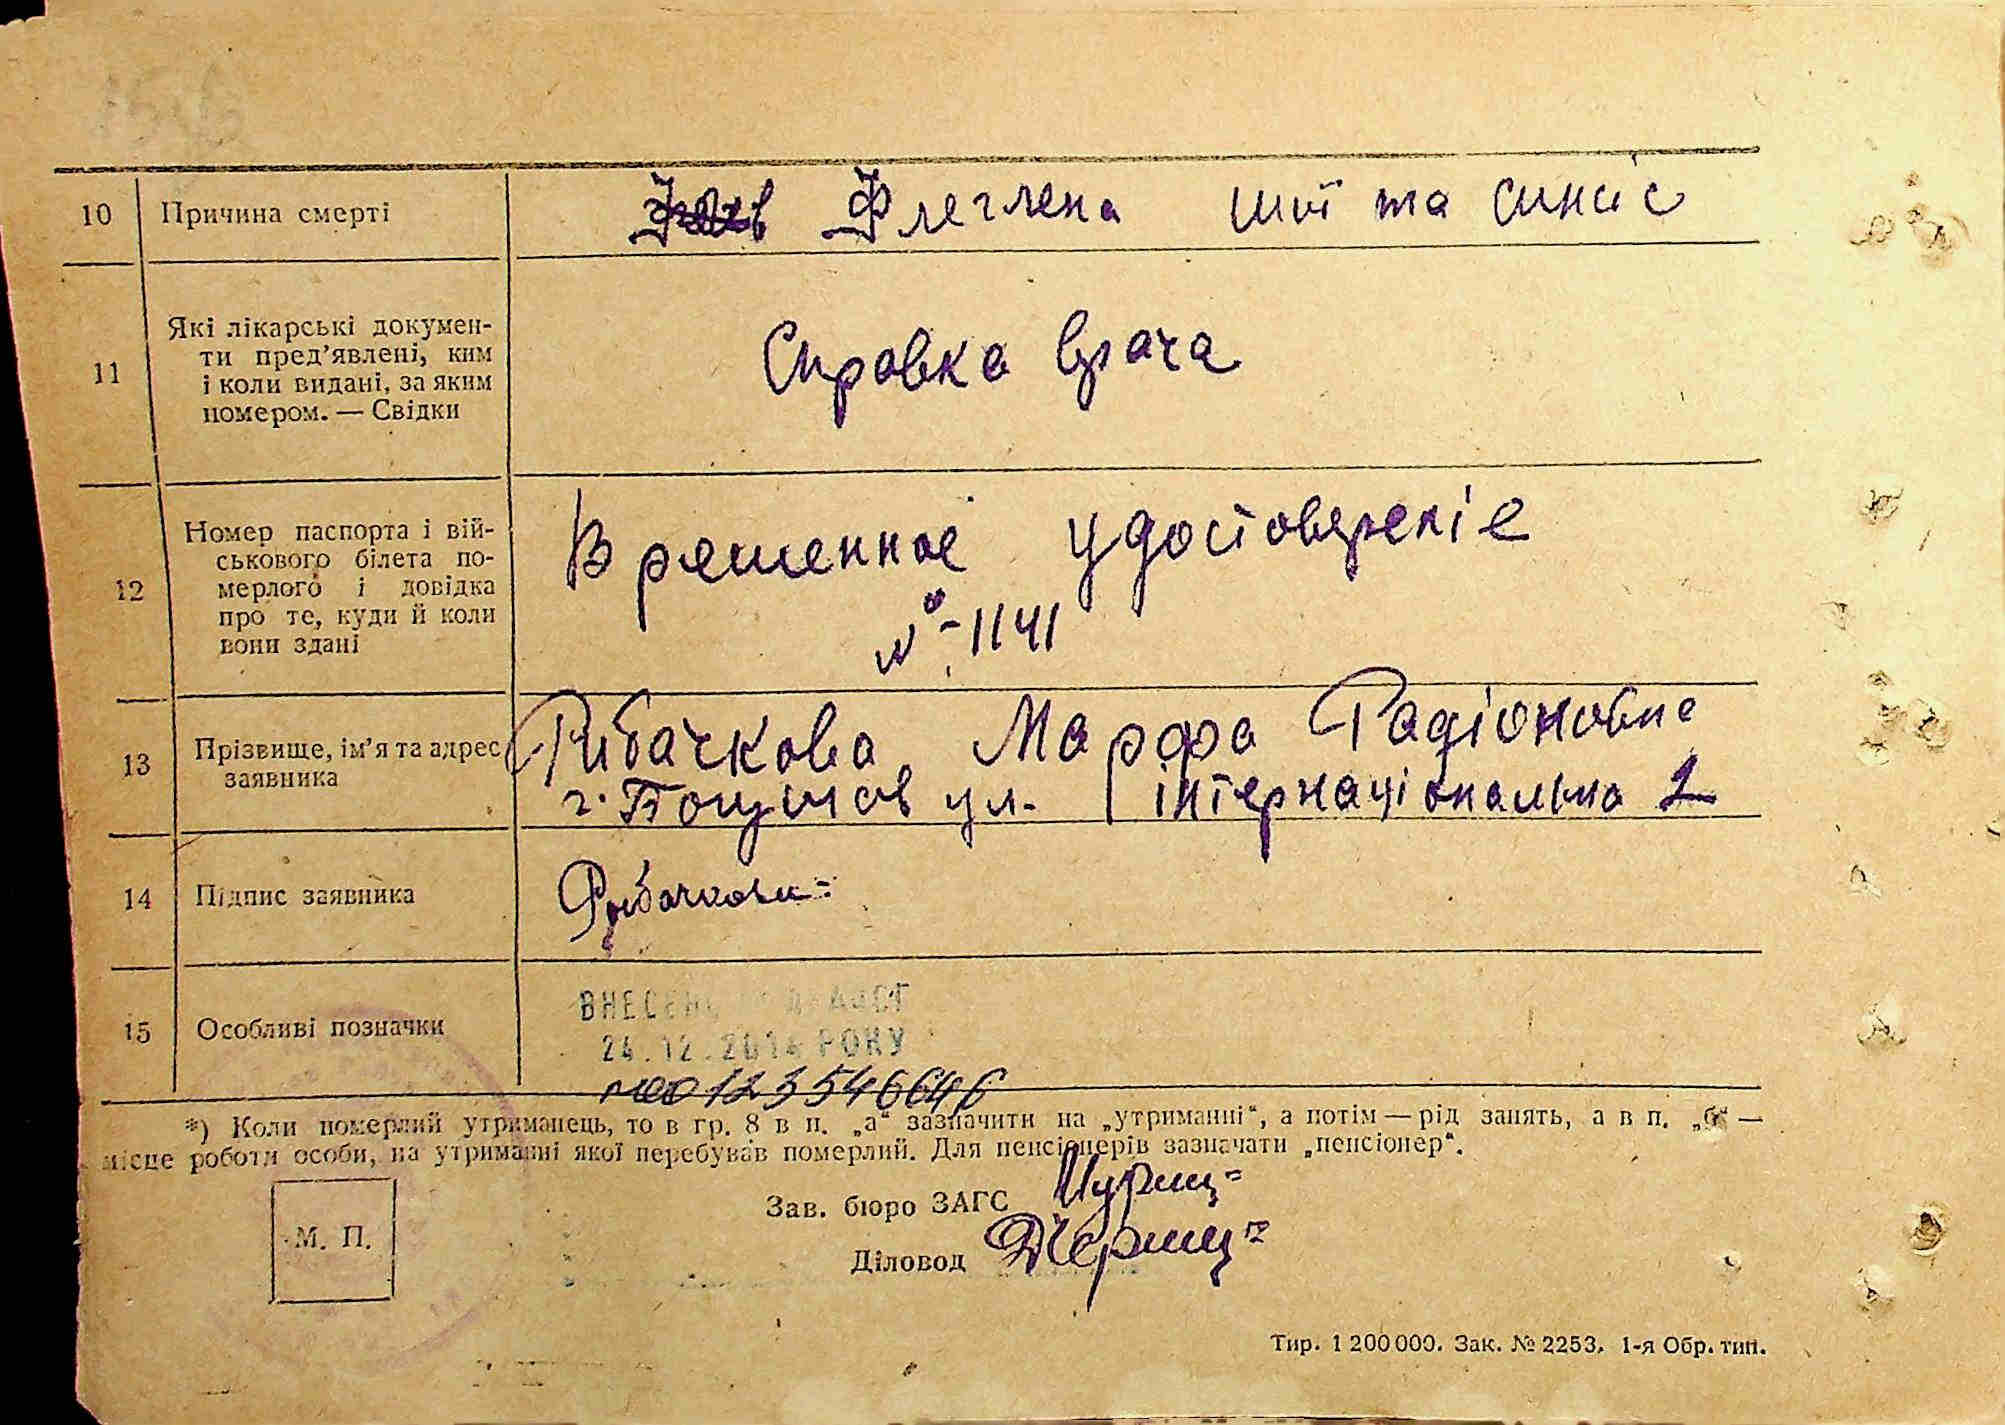 10 Причина смерті Флегмена шиї та
11 Які лікарські докумен-
ти пред'явлені, ким
і коли видані, за яким
номером. — Свідки
Справка врача
12 Номер паспорта і вій-
ськового білета по-
мерлого і довідка
про те, куди й коли
вони здані
Временное удостовереніе
№-1141
13 Прізвище, ім'я та адрес
заявника
Рибачкова Марфа Радіоновна
г. ул. інтернаціональна 2
14 Підпис заявника Рыбачкова
15 Особливі позначки
ВНЕСЕНО
24.12.2014 РОКУ
00123546646
*) Коли померлий утриманець, то в гр. 8 в п. „а“ зазначити на „утриманні“, а потім — рід занять, а в п. „б“ —
місце роботи особи, на утриманні якої перебував померлий. Для пенсіонерів зазначати „пенсіонер“.
Зав. бюро ЗАГС
Діловод
М. П.
Тир. 1 200 000. Зак. № 2253. 1-я Обр. тип.